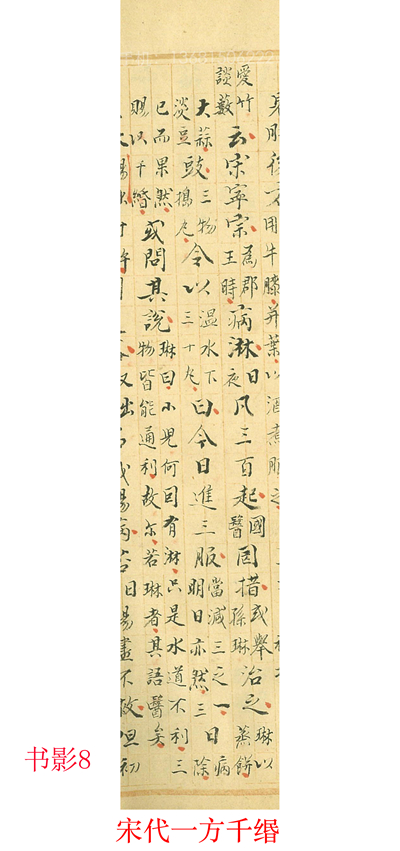 方用牛膝并葉以酒煮服之
愛竹談藪云宋寧宗為郡王時病淋日夜凡三百起國醫罔措或舉孫琳治之琳以蒸餅
大蒜淡豆豉三物搗丸令以温水下三十丸曰今日進三服當減三之一明日亦然三日病除
已而果然賜以千緡或問其說琳曰小兒何因有淋只是水道不利三物皆能通利故尔若琳者其語醫矣
书影8
宋代一方千缗